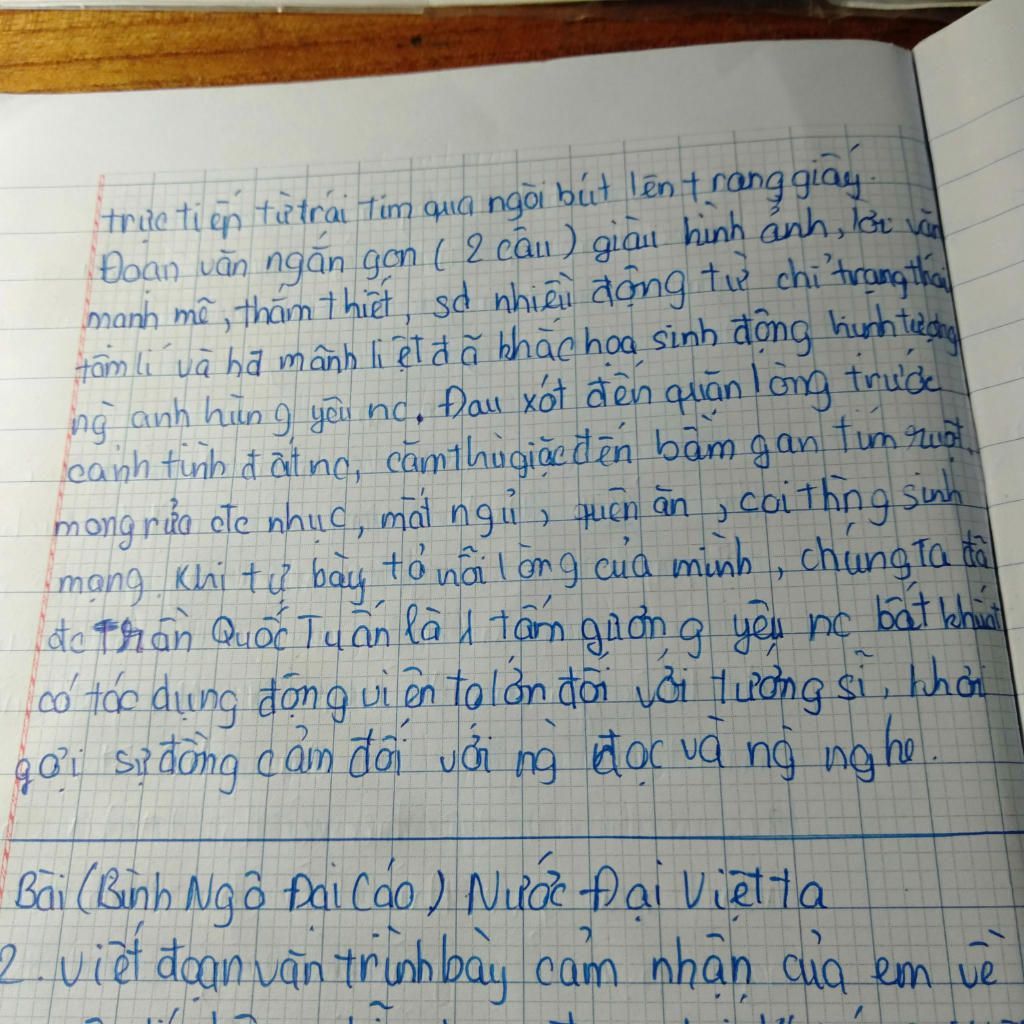 trực tiếp từ trái tim qua ngòi bút lên trang giấy.
Đoạn văn ngắn gọn (2 câu) giàu hình ảnh, lời văn
mạnh mẽ, thắm thiết, sd nhiều động từ chỉ trạng thái
tâm lí và hđ mãnh liệt đã khắc họa sinh động hình tượng
ng` anh hùng yêu nc. Đau xót đến quặn lòng trước
cảnh tình đất nc, căm thù giặc đến bầm gan tím ruột,
mong rửa đc nhục, mất ngủ, quên ăn, coi thg sinh
mạng. Khi tự bày tỏ nỗi lòng của mình, chúng ta đã
đc Trần Quốc Tuấn là 1 tấm gương yêu nc bất khuất
có tác dụng động viên to lớn đối với tướng sĩ, khơi
gợi sự đồng cảm đối với ng` đọc và ng` nghe.
Bài (Bình Ngô Đại Cáo) Nước Đại Việt ta
2. Viết đoạn văn trình bày cảm nhận của em về